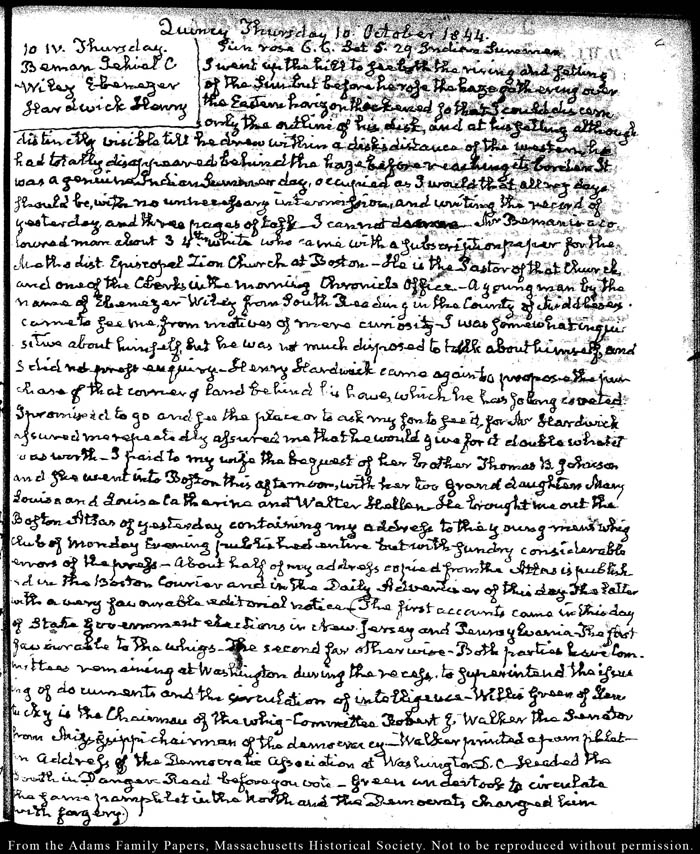 Quincy Thursday 10. October 1844.
10 IV. Thursday.
Beman Jehiel C
Wiley Ebenezer
Hardwick Henry
Sun rose 6. 6. Set 5. 29 Indian Summer
I went up the hill to see both the rising and setting
of the Sun but before he rose the haze gathering over
the Eastern horizon thickened so that I could discern
only the outline of his disk, and at his setting although
distinctly visible till he drew within a disk's distance of the western, he
had totally disappeared behind the haze before reaching its border. It
was a genuine Indian Summer day, occupied as I would that all my days
should be, with no unnecessary intermission, and writing the record of
yesterday and three pages of I cannot Mr Beman is a co-
loured man about 3 4ths white who came with a subscription paper for the
Methodist Episcopal Zion Church at Boston - He is the Pastor of that Church,
and one of the Clerks in the morning Chronicle Office - A young man by the
name of Ebenezer Wiley from South Reading in the County of Middlesex.
came to see me, from motives of mere curiosity - I was somewhat inqui-
sitive about himself but he was not much disposed to talk about himself, and
I did not enquiry - Henry Hardwick came again to propose the pur-
chase of that corner of land behind his house, which he has so long coveted.
I promised to go and see the place or to ask my son to see it, for Mr Hardwick
assured me repeatedly assured me that he would give for it double what it
was worth - I paid to my wife the bequest of her brother Thomas B. Johnson
and she went into Boston this afternoon, with her two Grand daughters Mary
Louisa and Louisa Catherine and Walter Hellen. She brought me out the
Boston Atlas of yesterday containing my address to the young men's whig
Club of Monday Evening published entire but with sundry considerable
errors of the press - About half of my address copied from the Atlas is publish-
ed in the Boston Courier and in the Daily Advertiser of this day. The latter
with a very favourable editorial notice - The first accounts came in this day
of State Government elections in New Jersey and Pennsylvania - The first
favourable to the whigs - The second far otherwise - Both parties have Com-
mittees remaining at Washington during the recess, to superintend the issu-
ing of documents and the circulation of intelligence - Willis Green of Ken-
tucky is the Chairman of the whig - Committee Robert J. Walker the Senator
from Mississippi chairman of the democracy - Walker printed a pamphlet -
an Address of the Democratic Association at Washington D.C - Headed the
South in Danger - Read before you vote - Green undertook to circulate
the same pamphlet in the North and the Democrats charged him
with forgery)
From the Adams Family Papers, Massachusetts Historical Society. Not to be reproduced without permission.